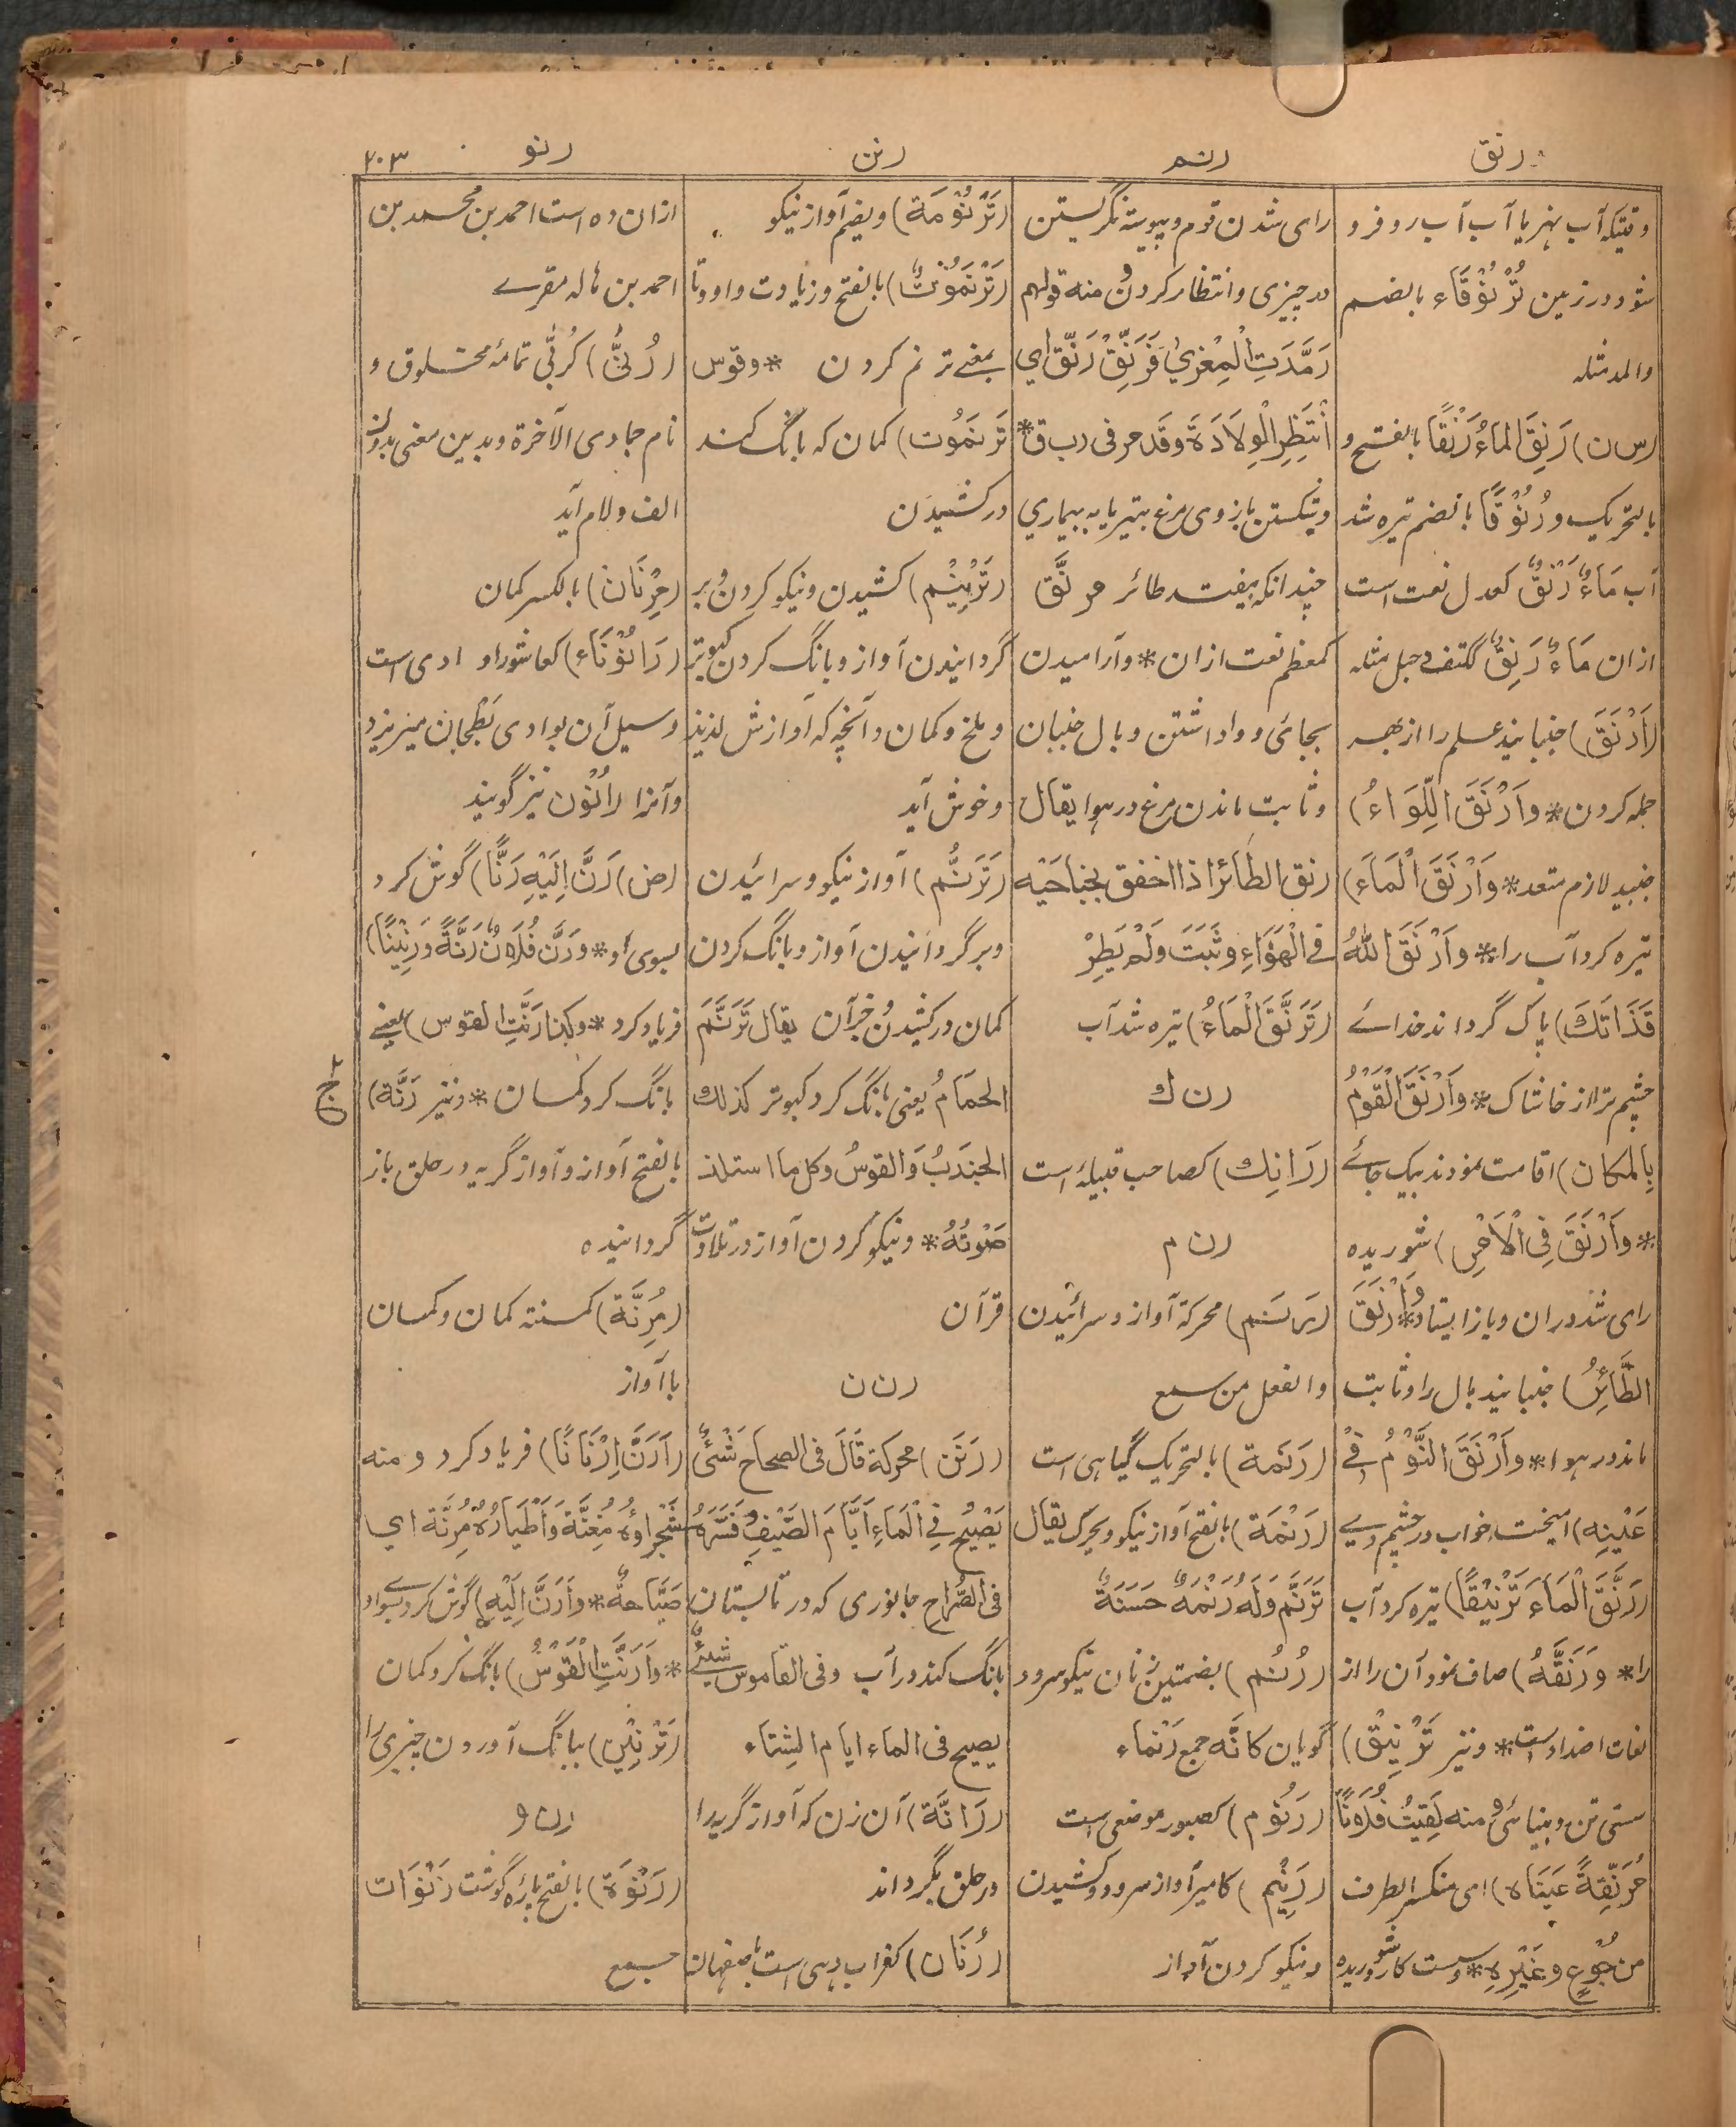 رنق
رنم
رن
رنو
۲۰۳
وقتیکه آب نهر یا آب آب رو فرو
شود در زمین تُرْنُوْقَاء بالضم
والمد مثله
(س ن) رَنِقَ الماءُ رَنْقًا بالفتح و
بالتحریک ورُنُوْقًا بالضم تیره شد
آب مَاءٌ رَنْقٌ کعدل نعت است
ازان مَاءٌ رَنِقٌ ککتف و جبل مثله
(اَرْنَقَ) جنبانید علم را از بهر
حمله کردن * واَرْنَقَ اللِّوَاءُ)
جنبید لازم متعد * وَاَرْنَقَ الْمَاءَ)
تیره کرد آب را * واَرْنَقَ اللهُ
قَذَاتَكَ) پاک گرداند خدائے
چشم ترا از خاشاک * وَاَرْنَقَ الْقَوْمُ
بِالمکان) اقامت نمودند بیک جائے
* وَاَرْنَقَ فِی الْاَمْرِ) شوریده
رای شد دران و باز ایستاد * وَاَرْنَقَ
الطَّائِرُ) جنبانید بال را و ثابت
ماند در هوا * وَاَرْنَقَ النَّوْمُ فِیْ
عَیْنِهِ) آمیخت خواب در چشم وے
(رَنَّقَ الْمَاءَ تَرْنِیْقًا) تیره کرد آب
را * وَرَنَّقَهُ) صاف نمود آن را از
لغات اضداد است * ونیز تَرْنِیْق)
سستی تن و بینائی و منه لَقِیْتُ فُلَانًا
مُرَنِّقَةً عَیْنَاه) ای منکسر الطرف
من جُوْعٍ وغَیْرِهِ * وسست کار و شوریده
رای شدن قوم و پیوسته نگریستن
در چیزی و انتظار کردن و منه قولهم
رَمَّدَتِ الْمِعْزىٰ فَرَنِّقْ رَنِّقْ اي
اُنْتَظِرِ الْوِلَادَةَ وقد مر فی رب ق *
و شکستن بازوی مرغ بتیر یا به بیماري
چندانکه بیفتد طائر مرنَّق
کمعظم نعت ازان * وآرامیدن
بجائی و واداشتن و بال جنبان
و ثابت ماندن مرغ در هوا یقال
رنق الطَائرُ اذا اخفق بجناحَیْه
فی الْهَوَاءِ وثَبَتَ وَلَمْ یَطِرْ
(تَرَنَّقَ الْمَاءُ) تیره شد آب
رن ك
(رَانِك) کصاحب قبیلهٔ است
رن م
(رَنَم) محرکة آواز و سرائیدن
والفعل من سمع
(رَنَمة) بالتحریک گیاهی است
(رَنْمَة) بالفتح آواز نیکو و یحرک یقال
تَرَنَّم وَلَهُ رَنْمَةٌ حَسَنَةٌ
(رُنُم) بضمتین زنان نیکو سرود
گویان کانّه جمع رَنْمَاء
(رَنُوْم) کصبور موضعی است
(رَنِیْم) کامیر آواز سرود و کشیدن
ونیکو کردن آواز
(تَرْنُوْمَة) ویضم آواز نیکو
(تَرْنَمُوْتٌ) بالفتح و زیادت واو و تا
بمعنے ترنم کردن * وقوس
تَرنمُوت) کمان که بانگ کند
در کشیدن
(تَرْنِیْم) کشیدن ونیکو کردن و بر
گردانیدن آواز و بانگ کردن کبوتر
و ملخ و کمان و آنچه که آوازش لذیذ
و خوش آید
(تَرَنُّم) آواز نیکو و سرائیدن
و برگردانیدن آواز و بانگ کردن
کمان در کشیدن و جز آن یقال تَرَنَّمَ
الحمَامُ یعنی بانگ کرد کبوتر کذلك
الجندَبُ وَالقوسُ وکل ما استلذ
صَوْتُهُ * ونیکو کردن آواز در تلاوت
قرآن
رن ن
(رَنَن) محرکة قَالَ فی الصحاح شَیْءٌ
یَصْیِحُ فِی الْمَاءِ اَیَّامَ الصَّیْفِ وفَسَّرَهُ
فی الصُّراح جانوری که در تابستان
بانگ کند در آب وفی القاموس شیئٌ
یصیح فی الماء ایام الشِتَاء
(رَانَّة) آن زن که آواز گریه را
در حلق بگرداند
(رُنَان) کغراب دهی است باصفهان
ازان ده است احمد بن محمد بن
احمد بن هاله مقرے
(رُنّٰی) کرُبّٰی تمامهٔ مخلوق و
نام جمادی الآخرة و بدین معنی بدون
الف و لام آید
(مِرْنَان) بالکسر کمان
(رَانُوْنَاء) کعاشوراء وادی است
وسیل آن بوادی بُطْحَان میریزد
وآنرا رانُوْن نیز گویند
(ض) رَنَّ اِلَیْهِ رَنًّا) گوش کرد
بسوی او * وَرَنَّ فُلَانٌ رَنَّةً وَرَنِیْنًا)
فریاد کرد * وکذا رَنَّتِ القوس) یعنے
بانگ کرد کمان * ونیز رَنَّة)
بالفتح آواز و آواز گریه در حلق باز
گردانیده
(مُرِنَّة) کمسنة کمان و کمان
با آواز
(اَرَنَّ اِرْنَانًا) فریاد کرد و منه
شَجَراؤُه مُغِنَّة وَاَطْیَارُهُ مُرِنَّة اي
صَیَّاحةٌ * وَاَرَنَّ اِلَیْهِ) گوش کرد بسوے او
* وَاَرَنَّتِ الْقَوْسُ) بانگ کرد کمان
(تَرْنِیْن) ببانگ آوردن چیزی را
رن و
(رَنْوَة) بالفتح پارهٔ گوشت رَنَوَات
جمع
ج